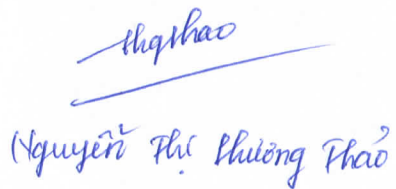 thqthao
Nguyễn Thị Hương Thảo